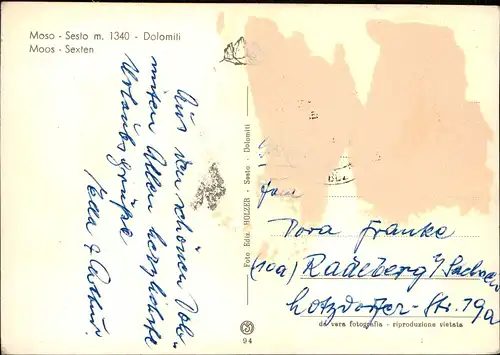 Moso - Sesto m. 1340 - Dolomiti
Moos - Sexten
Aus den schönen Dolo-
miten Allen herzlichste
Urlaubsgrüße
Foto Ediz. HOLZER - Sesto - Dolomiti
Dora Franke
(10a) Radeberg / Sachsen
Lotzdorfer-Str. 79a
da vera fotografia - riproduzione vietata
94